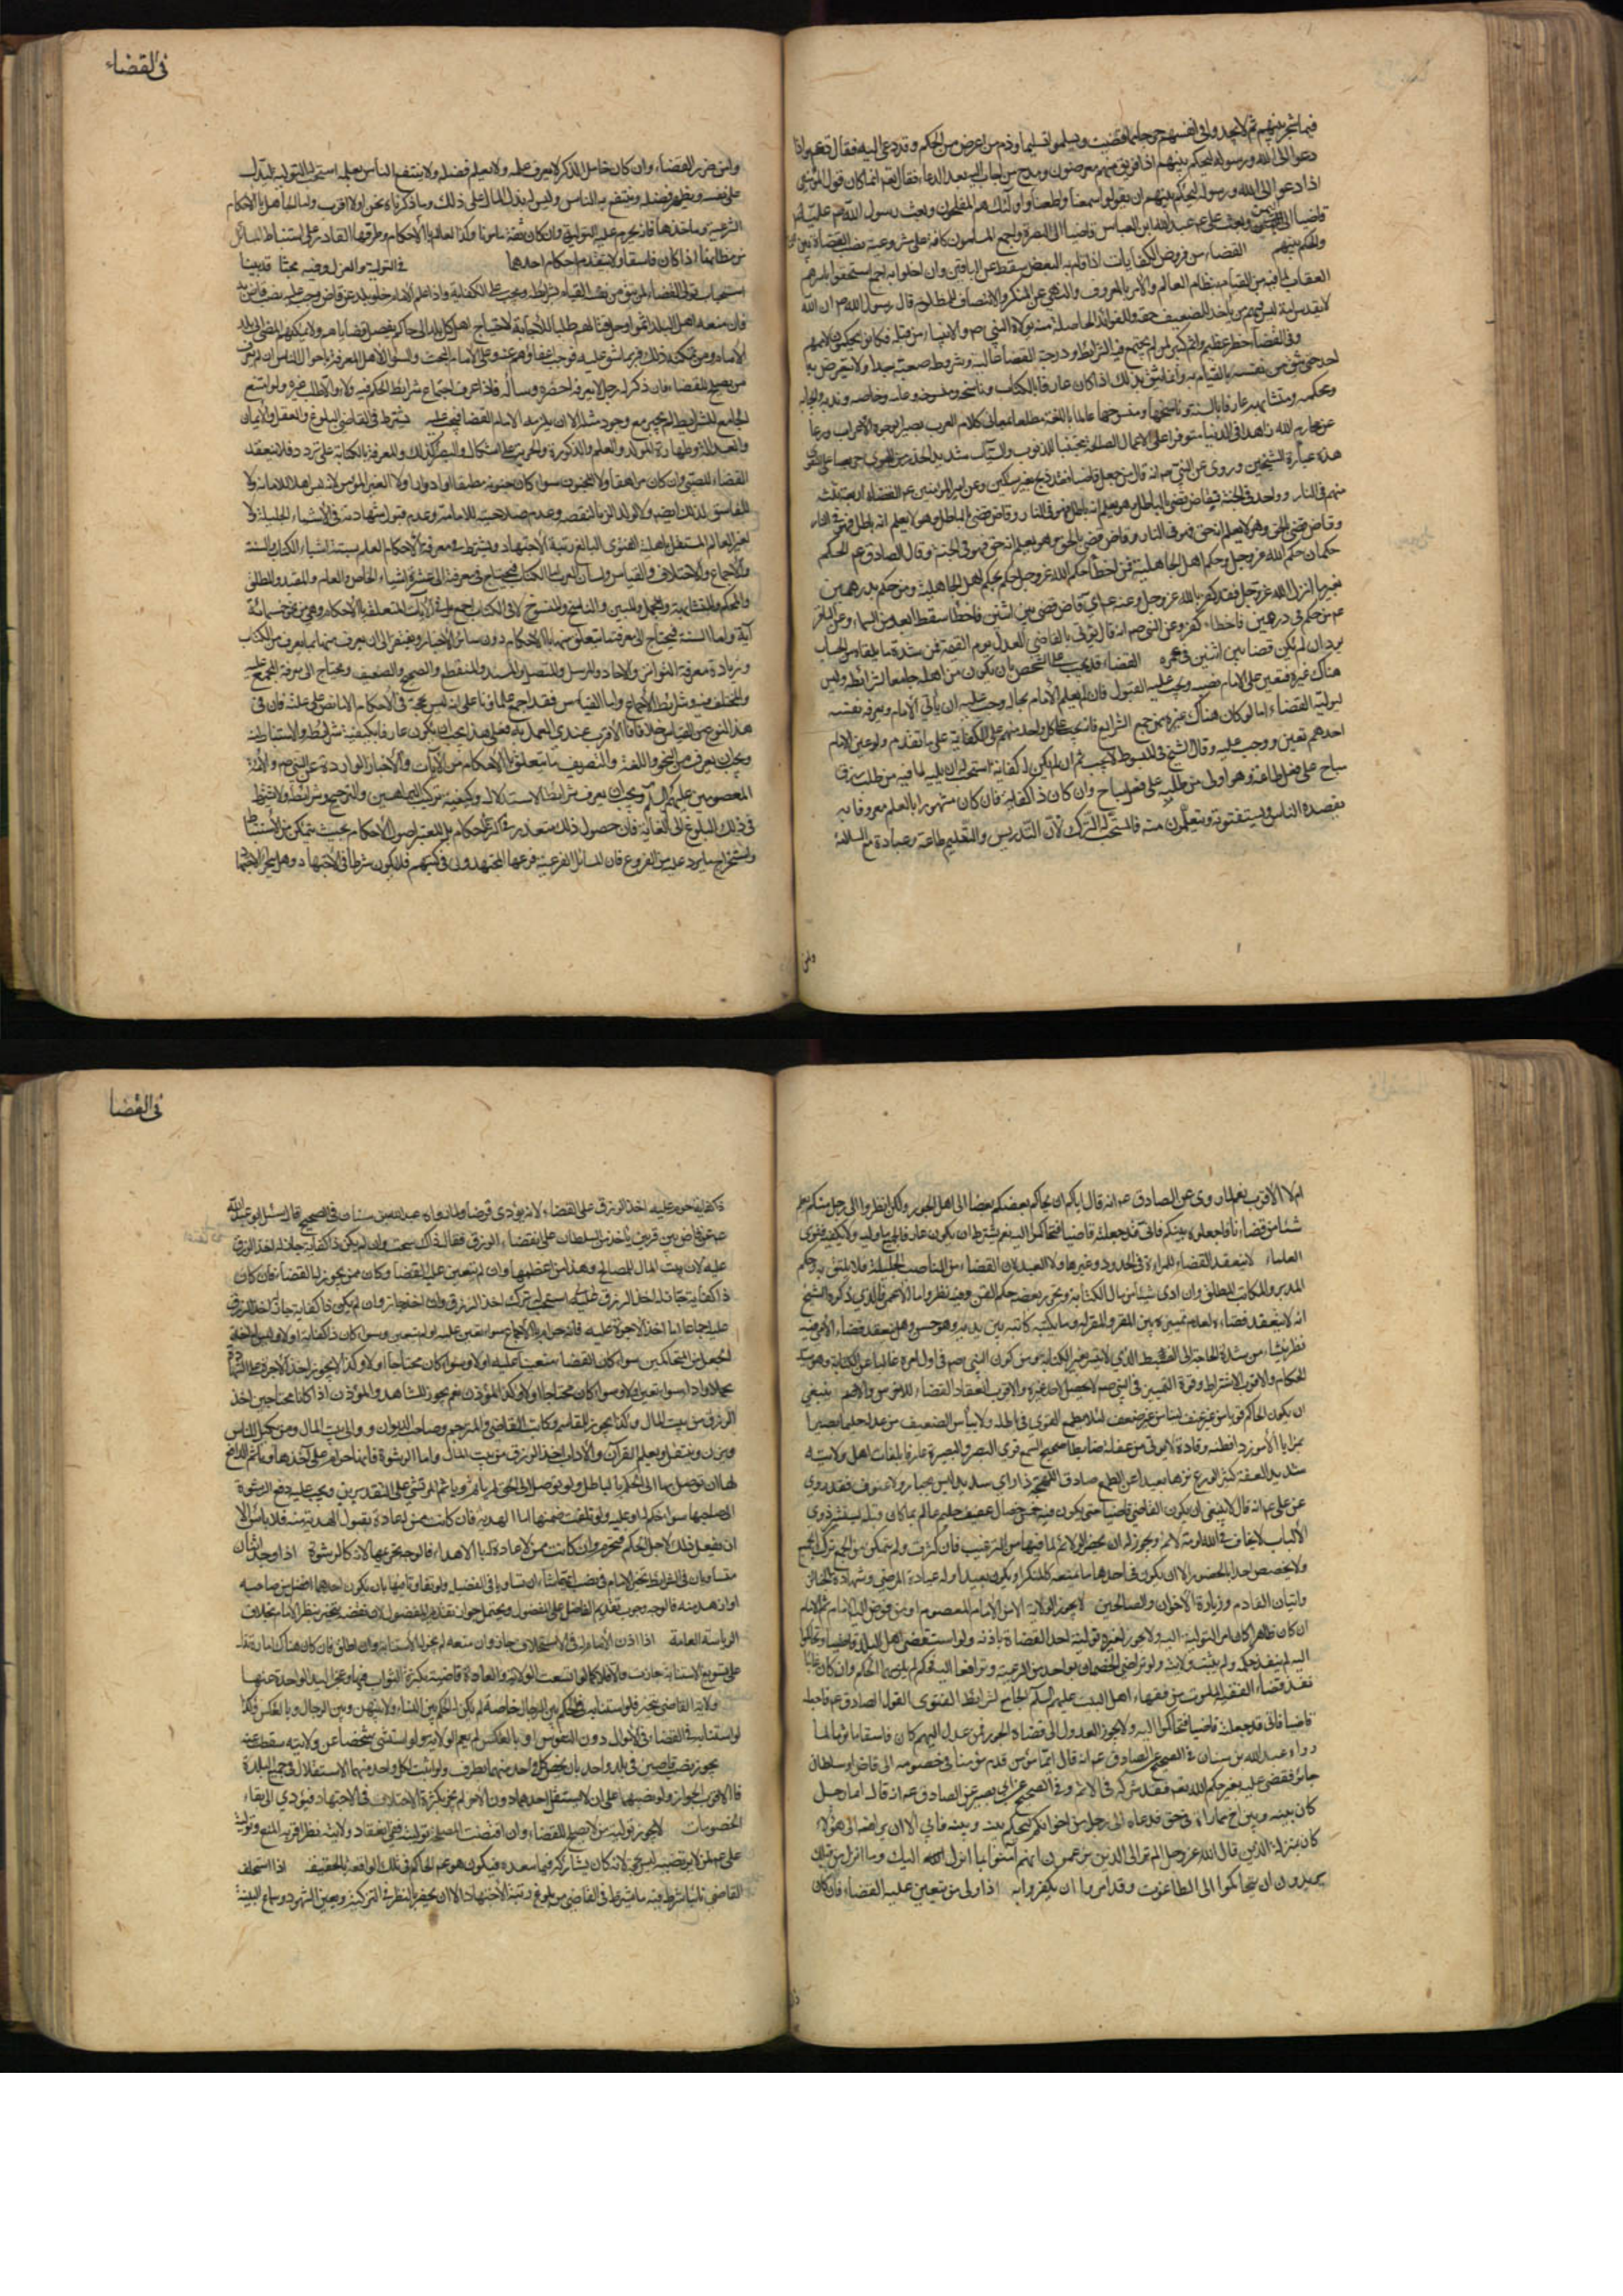 فيما شجر بينهم ثم لا يجدوا في انفسهم حرجا مما قضيت ويسلموا تسليما وذم من اعرض من الحكم وقد دعي اليه فقال تعم واذا
دعوا الى الله ورسوله ليحكم بينهم اذا فريق منهم معرضون ومدح من اجاب اليه بعد الدعاء فقال تعم انما كان قول المؤمنين
اذا دعوا الى الله ورسوله ليحكم بينهم ان يقولوا سمعنا واطعنا واولئك هم المفلحون وبعث رسول الله صم عليا
قاضيا الى اليمن وبعث علي عم عبد الله ابن العباس قاضيا الى البصرة واجمع المسلمون كافة على مشروعية نصب القضاة بين
والحكم بينهم القضاء من فروض الكفايات اذا قام به البعض سقط عن الباقين وان اخلوا به اجمع استحقوا باسرهم
العقاب لما فيه من القيام بنظام العالم والامر بالمعروف والنهي عن المنكر والانتصاف للمظلوم قال رسول الله صم ان الله
لا يقدس امة ليس فيهم من ياخذ للضعيف حقه وللفوائد الحاصلة منه تولاه النبي صم والانبياء من قبله فكانوا يحكمون لاممهم
وفي القضاء خطر عظيم واثم كبير لمن لم يجتمع فيه الشرايط ودرجة القضاء عالية وشروطه صعبة جدا ولا يتعرض له
احد حتى يثق من نفسه بالقيام به وانما يثق بذلك اذا كان عارفا بالكتاب وناسخه ومنسوخه وعامه وخاصه وندبه وايجابه
ومحكمه ومتشابهه عارفا بالسنة وناسخها ومنسوخها عالما باللغة مطلعا بمعاني كلام العرب بصيرا بوجوه الاعراب ورعا
عن محارم الله زاهدا في الدنيا متوفرا على الاعمال الصالحة مجتنبا للذنوب والسيآت شديد الحذر من الهوى حريصا على التقوى
هذه عبارة الشيخين وروي عن النبي صم انه قال من جعل قاضيا فقد ذبح بغير سكين وعن امير المؤمنين عم القضاة اربعة ثلثة
منهم في النار وواحد في الجنة قاض قضى بالباطل وهو يعلم انه باطل فهو في النار وقاض قضى بالباطل وهو لا يعلم انه باطل فهو في النار
وقاض قضى بالحق وهو لا يعلم انه حق فهو في النار وقاض قضى بالحق وهو يعلم انه حق فهو في الجنة وقال الصادق عم الحكم
حكمان حكم الله عز وجل وحكم اهل الجاهلية فمن اخطأ حكم الله عز وجل حكم بحكم اهل الجاهلية ومن حكم بدرهمين
بغير ما انزل الله عز وجل فقد كفر بالله عز وجل وعنه عم اي قاض قضى بين اثنين فاخطأ سقط ابعد من السماء وعن الباقر
عم من حكم في درهمين فاخطاء كفر وعن النبي صم انه قال يؤتى بالقاضي العدل يوم القيمة فمن شدة ما يلقاه من الحساب
يود ان لم يكن قضا بين اثنين في عمره القضاء قد يجب على الشخص بان يكون من اهله جامعا لشرائطه وليس
هناك غيره فتعين على الامام نصبه ويجب عليه القبول فان لم يعلم الامام بحاله وجب عليه ان يأتي الامام ويعرفه نفسه
ليوليه القضاء اما لو كان هناك غيره ممن جمع الشرايع فانه يجب على كل واحد منهم على الكفاية على ما تقدم ولو عين الامام
احدهم تعين ووجب عليه وقال الشيخ في المبسوط لا يجب ثم ان لم يكن ذا كفاية استحب له ان يليه لما فيه من طلب رزق
مباح على فعل طاعة وهو اولى من طلبه على فعل مباح وان كان ذا كفاية فان كان مشهورا بالعلم معروفا به
يقصده الناس ويستفتونه ويتعلمون منه فالمستحب له الترك لان التدريس والتعليم طاعة وعبادة مع السلامة
ولمن
في القضاء
وامن من ضرر القضاء وان كان خامل الذكر لا يعرف علمه ولا يعلم فضله ولا ينتفع الناس بعلمه استحب له التولية ليدل
على نفسه ويظهر فضله وينتفع به الناس وليس له بذل المال على ذلك وما ذكرناه نحن اولا اقرب واما الجاهل بالاحكام
الشرعية وماخذها فانه يحرم عليه التولية وان كان ثقة مامونا وكذا العالم بالاحكام وطرقها القادر على استنباط المسائل
من مظانها اذا كان فاسقا ولا تنفذ احكام احدهما في التولية والعزل وفيه بحثا قد بينا
استحباب تولي القضاء لمن يثق من نفسه القيام بشرائطه ويجب على الكفاية واذا علم الامام خلو بلد عن قاض وجب عليه بعث قاض اليه
فان منعه اهل البلد اثموا وحل قتالهم طلبا للاجابة لاحتياج اهل كل بلد الى حاكم يفصل قضاياهم ولا يمكنهم المضي الى بلد
الامام ومن تمكنه ذلك فربما شق عليه فوجب اغناؤهم عنه وعلى الامام البحث والسؤال لاهل المعرفة باحوال الناس ان لم يعرف
من يصلح للقضاء فان ذكر له رجل لا يعرفه احضره وساله فاذا عرف اجتماع شرايط الحكم فيه ولاه والا طلب غيره ولو امتنع
الجامع للشرايط لم يجبر مع وجود مثله الا ان يلزمه الامام القضا فيجب عليه يشترط في القاضي البلوغ والعقل والايمان
والعدالة وطهارة المولد والعلم والذكورة والحرية على اشكال والبصر كذلك والمعرفة بالكتابة على تردد فلا ينعقد
القضاء للصبي وان كان مراهقا ولا المجنون سواء كان جنونه مطبقا او ادوارا ولا الغير المؤمن لانه ليس اهلا للامانة ولا
للفاسق لذلك ايضه ولا لولد الزنا لنقصه وعدم صلاحيته للامامة وعدم قبول شهادته في الاشياء الجليلة ولا
لغير العالم المستقل باهلية الفتوى البالغ رتبة الاجتهاد ويشترط في معرفته بالاحكام العلم بستة اشياء الكتاب والسنة
والاجماع والاختلاف والقياس ولسان العرب اما الكتاب فيحتاج في معرفته الى عشرة اشياء الخاص والعام والمقيد والمطلق
والمحكم والمتشابه والمجمل والمبين والناسخ والمنسوخ لا في الكتاب اجمع بل في الآيات المتعلقة بالاحكام وهي نحو من خمسمائة
آية واما السنة فيحتاج الى معرفة ما يتعلق منها بالاحكام دون سائر الاخبار ويفتقر الى ان يعرف منها ما يعرف من الكتاب
وزيادة معرفة المتواتر والاحاد والمرسل والمتصل والمسند والمنقطع والصحيح والضعيف ويحتاج الى معرفة المجمع عليه
والمختلف فيه وشرائط الاجماع واما القياس فقد اجمع علماؤنا على انه ليس بحجة في الاحكام الا ما نص على علته فان في
هذا النوع من القياس خلافا والاقرب عندي العمل به فعلى هذا يجب ان يكون عارفا بكيفيته شرائط والاستنباط منه
ويجب ان يعرف من النحو واللغة والتصريف ما يتعلق بالاحكام من الآيات والاخبار الواردة عن النبي صم والائمة
المعصومين عليهم السلام ويجب ان يعرف شرائط الاستدلال وكيفية تركيب البراهين والترجيح وشرائطه ولا يشترط
في ذلك البلوغ الى الغاية فان حصول ذلك متعذر في اكثر الاحكام بل المعتبر اصول الاحكام بحيث يتمكن من الاستنباط
واستخراج ما يرد عليه من الفروع فان المسائل الفرعية فرعها المجتهدون في كتبهم فلا يكون شرطا في الاجتهاد وهل يتجزى الاجتهاد
ام لا الاقرب نعم لما روي عن الصادق عم انه قال اياكم ان يحاكم بعضكم بعضا الى اهل الجور ولكن انظروا الى رجل منكم يعلم
شيئا من قضايانا فاجعلوه بينكم فاني قد جعلته قاضيا فتحاكموا اليه نعم يشترط ان يكون عارفا بجميع ما وليه ولا يكفيه فتوى
العلماء لا ينعقد القضاء للمراة في الحدود وغيرها ولا العبد لان القضاء من المناصب الجليلة فلا يليق به وحكم
المدبر والمكاتب المطلق وان ادى شيئا من مال الكتابة وتحرر بعضه حكم القن وفيه نظر واما الاعمى فالذي ذكره الشيخ
انه لا ينعقد قضاءه لعدم تمييزه بين المقر والمقر له وما يكتبه كاتبه بين يديه وهو حسن وهل ينعقد قضاء الامي فيه
نظر ينشاء من شدة الحاجة الى الضبط الذي لا يتيسر بغير الكتابة ومن كون النبي صم في اول امره خاليا عن الكتابة وهو سيد
الحكام والاقرب الاشتراط وقوة التمييز في النبي صم لا يحصل لاحد غيره والاقرب انعقاد القضاء للاخرس والاصم ينبغي
ان يكون الحاكم قويا من غير عنف لينا من غير ضعف لئلا يطمع القوي في باطله ولا ييأس الضعيف من عدله حليما بصيرا
بمزايا الامور ذا فطنة وقادة لا يؤتى من غفلة ضابطا صحيح السمع قوي البصر والبصيرة عارفا بلغات اهل ولايته
شديد العفة كثير الورع نزها بعيدا عن الطمع صادق اللهجة ذا راي سديد ليس بجبار ولا عنوف فقد روي
عن علي عم انه قال لا ينبغي ان يكون القاضي قاضيا حتى يكون فيه خمس خصال عفيف حليم عالم بما كان قبله ليستشير ذوي
الالباب لا يخاف في الله لومة لائم ويجوز له ان يحضر الولائم لما فيها من الترغيب فان كثرت ولم يتمكن من الجمع ترك الجميع
ولا يخصص احدا بالحضور الا ان يكون في احدها ما يمنعه كالمنكر او يكون بعيدا وله عيادة المرضى وشهادة الجنائز
واتيان القادم وزيارة الاخوان والصالحين لا يجوز الولاية الا من الامام المعصوم او من فوض اليه الامام ثم الامام
ان كان ظاهرا كان امر التولية اليه ولا يجوز لغيره تولية احد القضاة باذنه ولو استقضى اهل البلد قاضيا وتحاكموا
اليه لم ينفذ حكمه ولم يثبت ولايته ولو تراضى الخصمان بواحد من الرعية وترافعا اليه فحكم لم يلزمهما الحكم وان كان غائبا
نفذ قضاء الفقيه المامون من فقهاء اهل البيت عليهم السلم الجامع لشرايط الفتوى لقول الصادق عم فاجعلوه
قاضيا فاني قد جعلته قاضيا فتحاكموا اليه ولا يجوز العدول الى قضاة الجور فمن عدل اليهم كان فاسقا ماثوما لما
رواه عبد الله بن سنان في الصحيح عن الصادق عم انه قال ايما مؤمن قدم مؤمنا في خصومه الى قاض او سلطان
جائر فقضى عليه بغير حكم الله تعم فقد شركه في الاثم وفي الصحيح عن ابي بصير عن الصادق عم انه قال ايما رجل
كان بينه وبين اخ مماراة في حق فدعاه الى رجل من اخوانكم ليحكم بينه وبينه فابى الا ان يرافعه الى هؤلاء
كان بمنزلة الذين قال الله عز وجل الم تر الى الذين يزعمون انهم آمنوا بما انزل اليك وما انزل من قبلك
يريدون ان يتحاكموا الى الطاغوت وقد امروا ان يكفروا به اذا ولى من يتعين عليه القضاء فان كان
في القضا
ذا كفاية حرم عليه اخذ الرزق على القضاء لانه يؤدي فرضا ولما رواه عبد الله بن سنان في الصحيح قال سئل ابو عبد الله
عم عن قاض بين قريتين ياخذ من السلطان على القضاء الرزق فقال ذلك سحت وان لم يكن ذا كفاية جاز له اخذ الرزق
عليه لان بيت المال للمصالح وهذا من اعظمها وان لم يتعين عليه القضا وكان ممن يجوز له القضاء فان كان
ذا كفاية جاز له اخذ الرزق عليه استحب له ترك اخذ الرزق وان اخذ جاز وان لم يكن ذا كفاية جاز له اخذ الرزق
عليه اجماعا اما اخذ الاجرة عليه فانه حرام بالاجماع سواء تعين عليه او لم يتعين وسواء كان ذا كفاية او لا وليس له اخذ
الجعل من المتحاكمين سواء كان القضا متعينا عليه او لا وسواء كان محتاجا او لا وكذا لا يجوز اخذ الاجرة على الشهادة
تحملا واداء سواء تعين او لا وسواء كان محتاجا او لا وكذا المؤذن نعم يجوز للشاهد والمؤذن اذا كانا محتاجين اخذ
الرزق من بيت المال وكذا يجوز للقاسم وكاتب القاضي والمترجم وصاحب الديوان ووالي بيت المال ومن يكيل للناس
ويزن وينقل ويعلم القرآن والآداب اخذ الرزق من بيت المال واما الرشوة فانها حرام على آخذها وياثم الدافع
لها ان توصل بها الى الحكم له بالباطل ولو توصل الى الحق لم ياثم وياثم المرتشي على التقديرين ويجب عليه دفع الرشوة
الى صاحبها سواء حكم له او عليه ولو تلفت ضمنها اما الهدية فان كانت ممن له عادة بقبول الهدية منه فلا باس الا
ان يفعل ذلك لاجل الحكم فيحرم وان كانت ممن لا عادة له بالاهداء فالوجه تحريمها لانه كالرشوة اذا وجد اثنان
متساويان في الشرايط تخير الامام في نصب ايهما شاء ان تساويا في الفضيلة ولو تفاوتا فيها بان يكون احدهما افضل من صاحبه
او ازهد منه فالوجه وجوب تقديم الفاضل على المفضول ويحتمل جواز تقديم المفضول لان نقصه ينجبر بنظر الامام بخلاف
الرياسة العامة اذا اذن الامام له في الاستخلاف جاز وان منعه لم يجز له الاستنابة وان اطلق فان كان هناك امارة تدل
على تسويغ الاستنابة جازت والا فلا كما لو اتسعت الولاية والعادة قاضية بكثرة النواب فيها وعجز اليد الواحدة عنها
ولاية القاضي تتجزى فلو استنابه في الحكم بين الرجال خاصة لم يكن له الحكم بين النساء ولا بينهن وبين الرجال وبالعكس وكذا
لو استنابه في القضاء في الاموال دون النفوس او بالعكس لم يعم الولاية ولو استثنى شخصا عن ولايته سقطت عنه
يجوز نصب قاضيين في بلد واحد بان يختص كل واحد منهما بطرف ولو اثبت لكل واحد منهما الاستقلال في جميع البلدة
فالاقرب الجواز ولو نصبهما على ان لا يستقل احدهما دون الآخر لم يجز لكثرة الاختلاف في الاجتهاد فيؤدي الى بقاء
الخصومات لا يجوز تولية من لا يصلح للقضاء وان اقتضت المصلحة توليته ففي انعقاد ولايته نظر اقربه المنع وتولية
علي عم لمن لا يرتضيه ليس بحجة لانه كان يشاركه فيما ينفذه فيكون هو عم الحاكم في تلك الواقعة بالحقيقة اذا استخلف
القاضي نائبا شرط فيه ما يشترط في القاضي من بلوغ رتبة الاجتهاد الا ان يختص بالنظر في التزكية وتعيين الشهود وسماع البينة